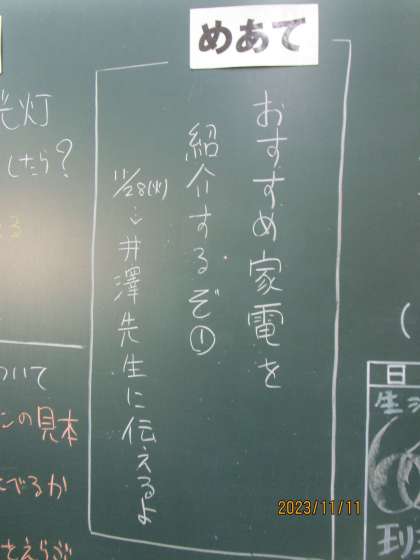 めあて
おすすめ家電を
紹介するぞ①
11/28(火)
↓
井澤先生に伝えるよ
光灯
したら?
ついて
ンの見本
でるか
さえらぶ
日
生
2023/11/11